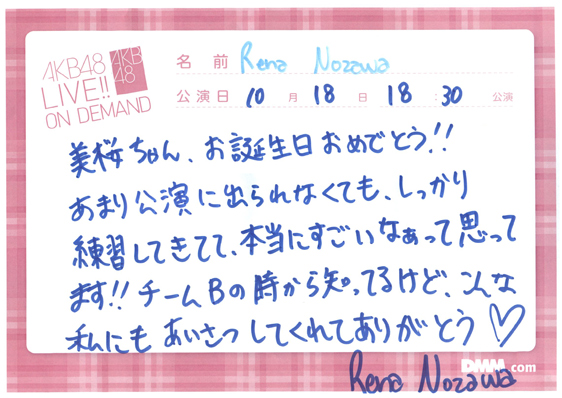 AKB48
LIVE!!
ON DEMAND
AKB
48
名前 Rena Nozawa
公演日 10月 18日 18:30 公演
美桜ちゃん、お誕生日おめでとう!!
あまり公演に出られなくても、しっかり
練習してきてて、本当にすごいなぁって思って
ます!!チームBの時から知ってるけど、こんな
私にもあいさつしてくれてありがとう♡
Rena Nozawa
DMM.com